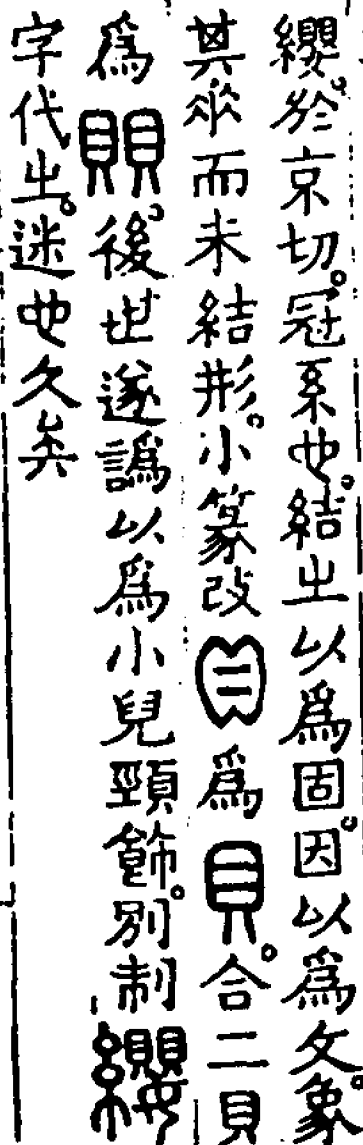 纓於京切。冠系也。結㞢以爲固。因以爲文。象
其垂而未結形。小篆改𦣻爲貝。合二貝
爲賏。後世遂譌以爲小兒頸飾。別制纓
字代㞢。迷也久矣